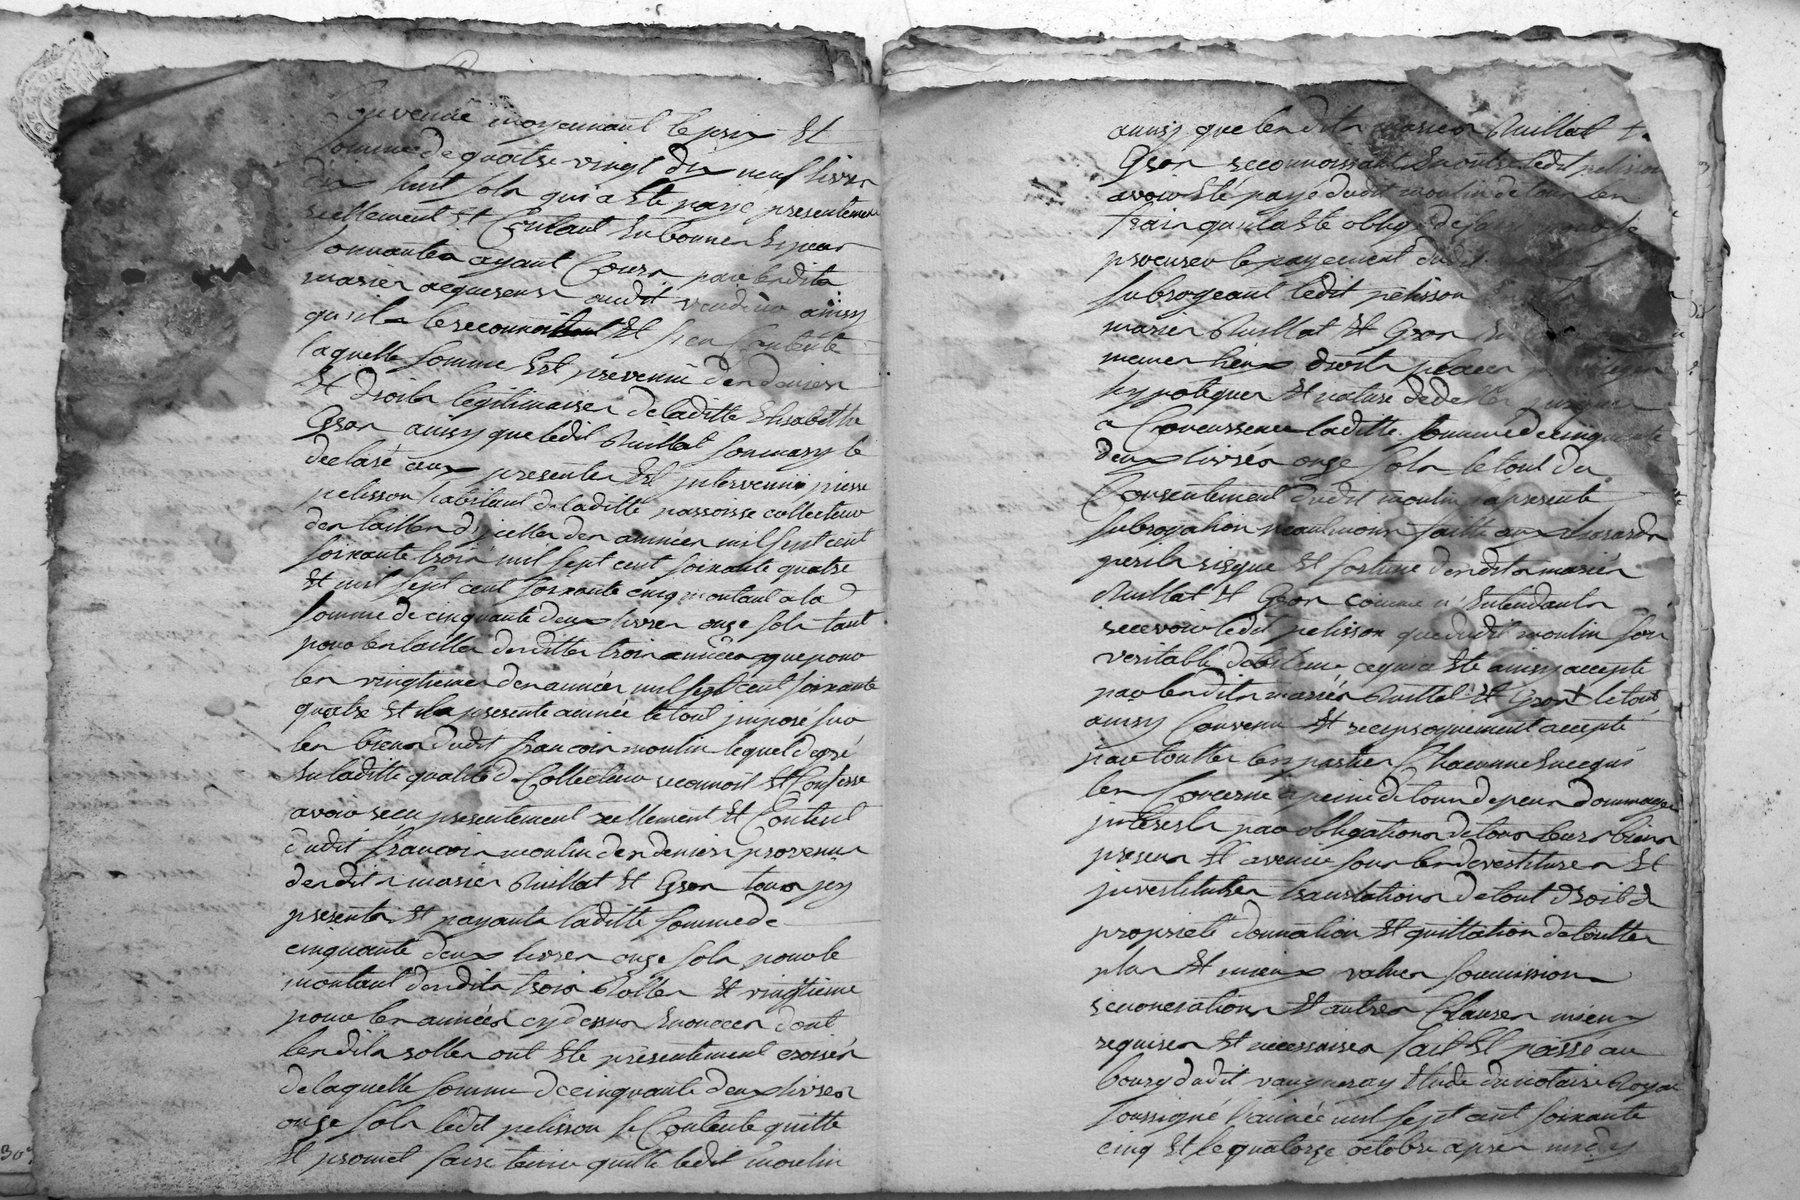 cy vendu moyennant le prix Et
Somme de quattre vingt dix neuf livres
dix huit sols qui a Ete payé presentement
reellement Et Contant En bonnes Especes
sonnantes ayant Cours par lesdits
mariés acquereurs audit vendeur ainsy
qu'il le reconnoit Et s'en Contente
laquelle somme Est prevenüe des deniers
Et droits legitimaires de laditte Elisabethe
Gron ainsy que ledit Ruillat son mary le
declare ceux presente Est intervenu pierre
pelisson habitant de laditte parroisse collecteur
des tailles d'jcelles des années mil sept cent
soixante trois mil sept cent soixante quatre
Et mil sept cent soixante cinq montant a la
somme de cinquante deux livres onze sols tant
pour les tailles desdittes trois années que pour
les vingtiemes des années mil sept cent soixante
quatre Et la presente année le tout jmposé sur
les biens dudit francois moulin lequel de gré
En laditte qualité de Collecteur reconnoit Et Confesse
avoir receu presentement reellement Et Contant
dudit francois moulin des deniers provenus
desdits mariés Ruillat Et Gron tous jcy
presents Et payants laditte somme de
cinquante deux livres onze sols pour le
montant desdits trois Rolles Et vingtieme
pour les années cy dessus Enoncées dont
lesdits rolles ont Ete presentement croisés
de laquelle somme de cinquante deux livres
onze sols ledit pelisson se Contente quitte
Et promet faire tenir quitte ledit moulin
ainsy que lesdits mariés Ruillat Et
Gron reconnoissant En outre ledit pelisson
avoir Eté payé dudit moulin de tous les
frais qu'il a Ete obligé de faire pour se
procurer le payement dudit
subrogeant ledit pelisson
mariés Ruillat Et Gron En
memes lieux droits places privileges
hypoteques Et nature de dette jusques
a Concurrence laditte somme de cinquante
deux livres onze sols le tout du
Consentement dudit moulin la presente
subrogation neanmoins faitte aux hasards
perils risque Et fortune desdits mariés
Ruillat Et Gron comme n'Entendants
recevoir ledit pelisson que dudit moulin son
veritable debiteur ce qui a Ete ainsy accepté
par lesdits mariés Ruillat Et Gron le tout
ainsy Convenu Et reciproquement accepté
par touttes les parties Chacunne En ce qui
les Concerne a peine de tous depens dommages
jnterests par obligations de tous leurs biens
presens Et avenir sous les devestitures Et
jnvestitures translations de tout droit de
proprieté donnation Et quittation de touttes
plus Et mieux values soumissions
renonciations Et autres Clauses mieux
requises Et necessaires fait Et passé au
bourg dudit vaugneray Etude du notaire Royal
soussigné l'année mil sept cent soixante
cinq Et le quatorze octobre apres midy